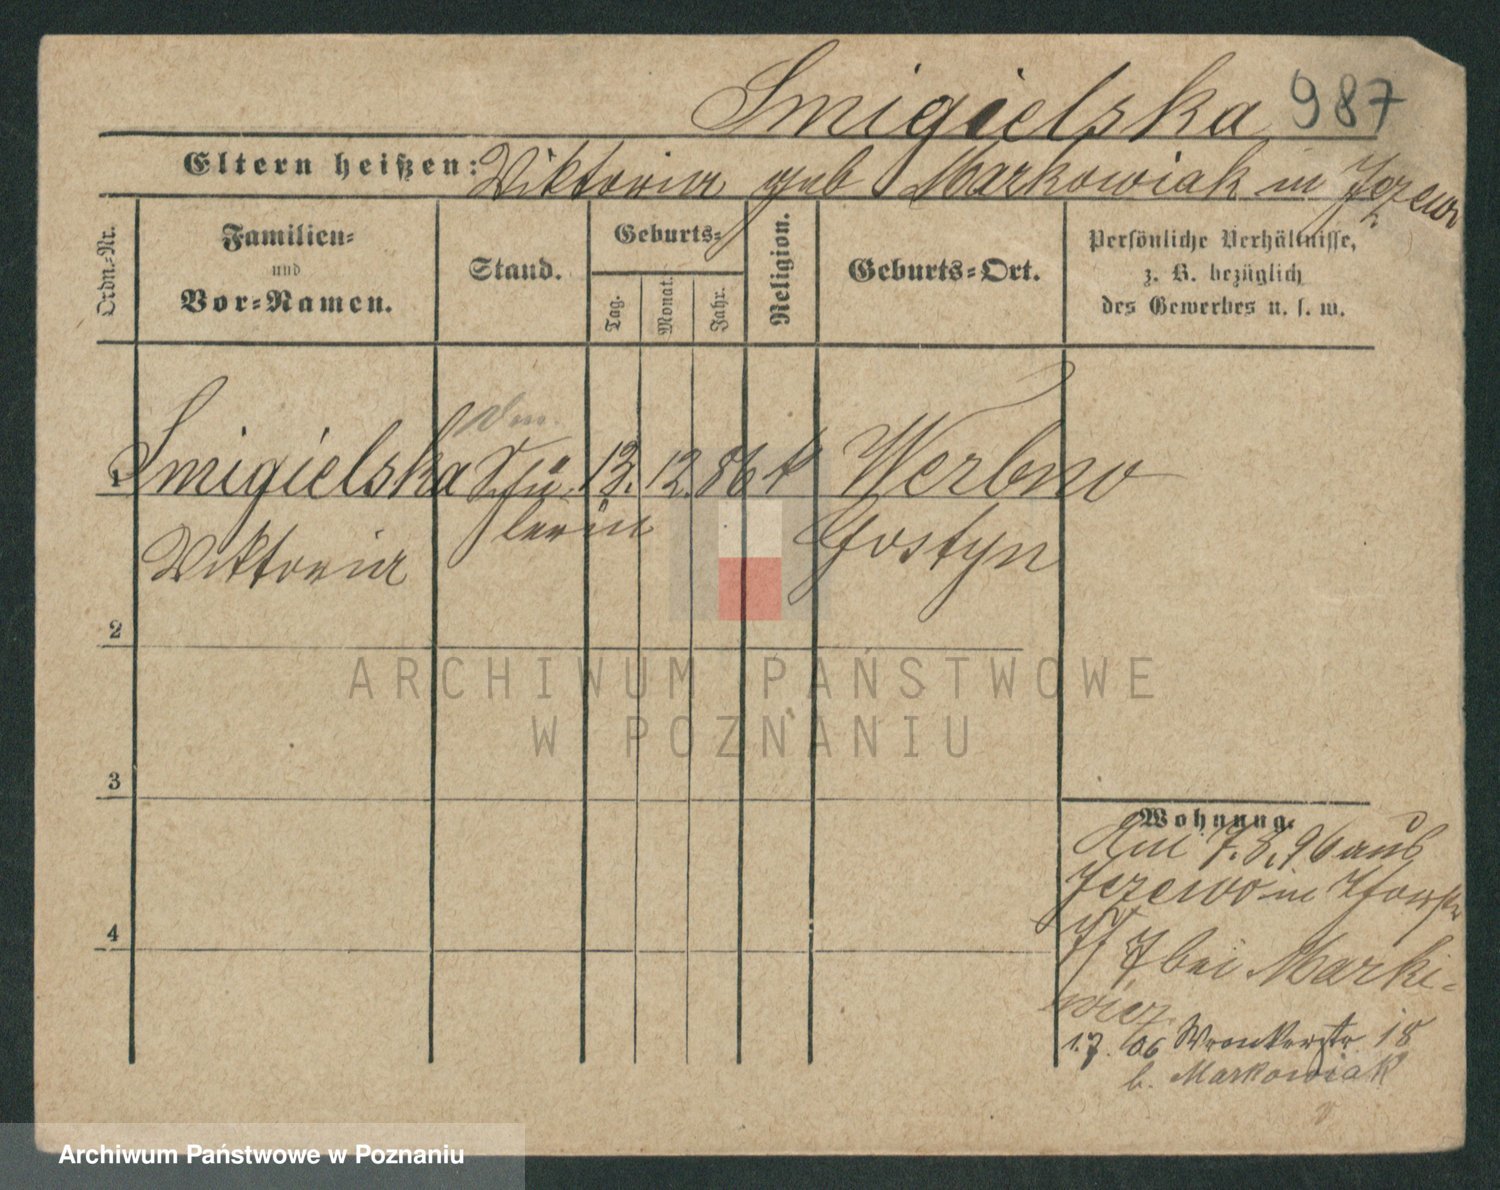 Smigielska 987
Eltern heißen: Viktoria geb Markowiak in Jezewo
Ordn.-Nr.
Familien-
und
Vor-Namen.
Stand.
Geburts-
Tag.
Monat.
Jahr.
Religion.
Geburts-Ort.
Persönliche Verhältnisse,
z. B. bezüglich
des Gewerbes u. s. w.
1 Smigielska Schü- 13. 12. 86 k Werbno
lerin Gostyn
Viktoria
2
3
4
ARCHIWUM PAŃSTWOWE
W POZNANIU
Wohnung.
Am 7.3.96 aus
Jezewo in
bei Marki-
wicz
1.7.06 Wronkerstr 18
b. Markowiak
Archiwum Państwowe w Poznaniu